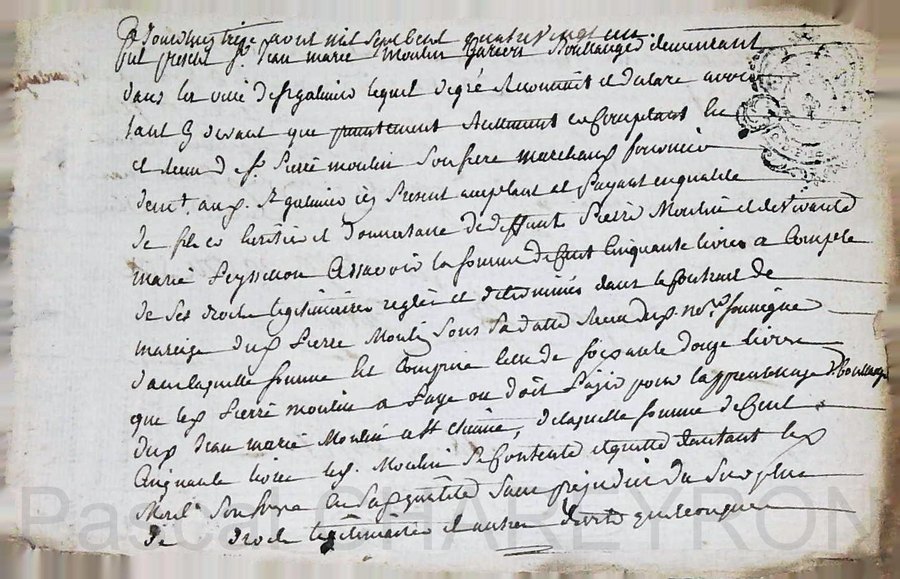 Aujourdhuy treze aout mil sept cent quatre vingt un
fut present sr Jean marie Moulin garcon Boulanger demeurant
dans la ville de st galmier lequel de gré a reconnut et declare avoir
tant cy devant que presentement reellement en comptant lu
et demand sr Pierre moulin son frere marchand
demt aud. st galmier icy present acceptant et Payant en qualité
de fils co heritier et donnataire de deffunt Pierre Moulin et de vivante
marie Peyssellon assavoir la somme de Cent Cinquante livres a Compte
de ses droits legitimaires reglés et determinés dans le Contrat de
mariage dud. Pierre Moulin sous sa datte Recu dud. nore soussigné
dans laquelle somme est comprise celle de soixante douze livres
que led. Pierre moulin a Paye ou doit Payer pour l'apprentissage de boulanger
dud. Jean marie Moulin a st Etienne, de laquelle somme de Cent
Cinquante livres led. Moulin se Contente et quitte dautant led.
son frere en sa qualité sans prejudice du surplus
de droits legitimaires et autres droits quelconques
Pascal CHAREYRON